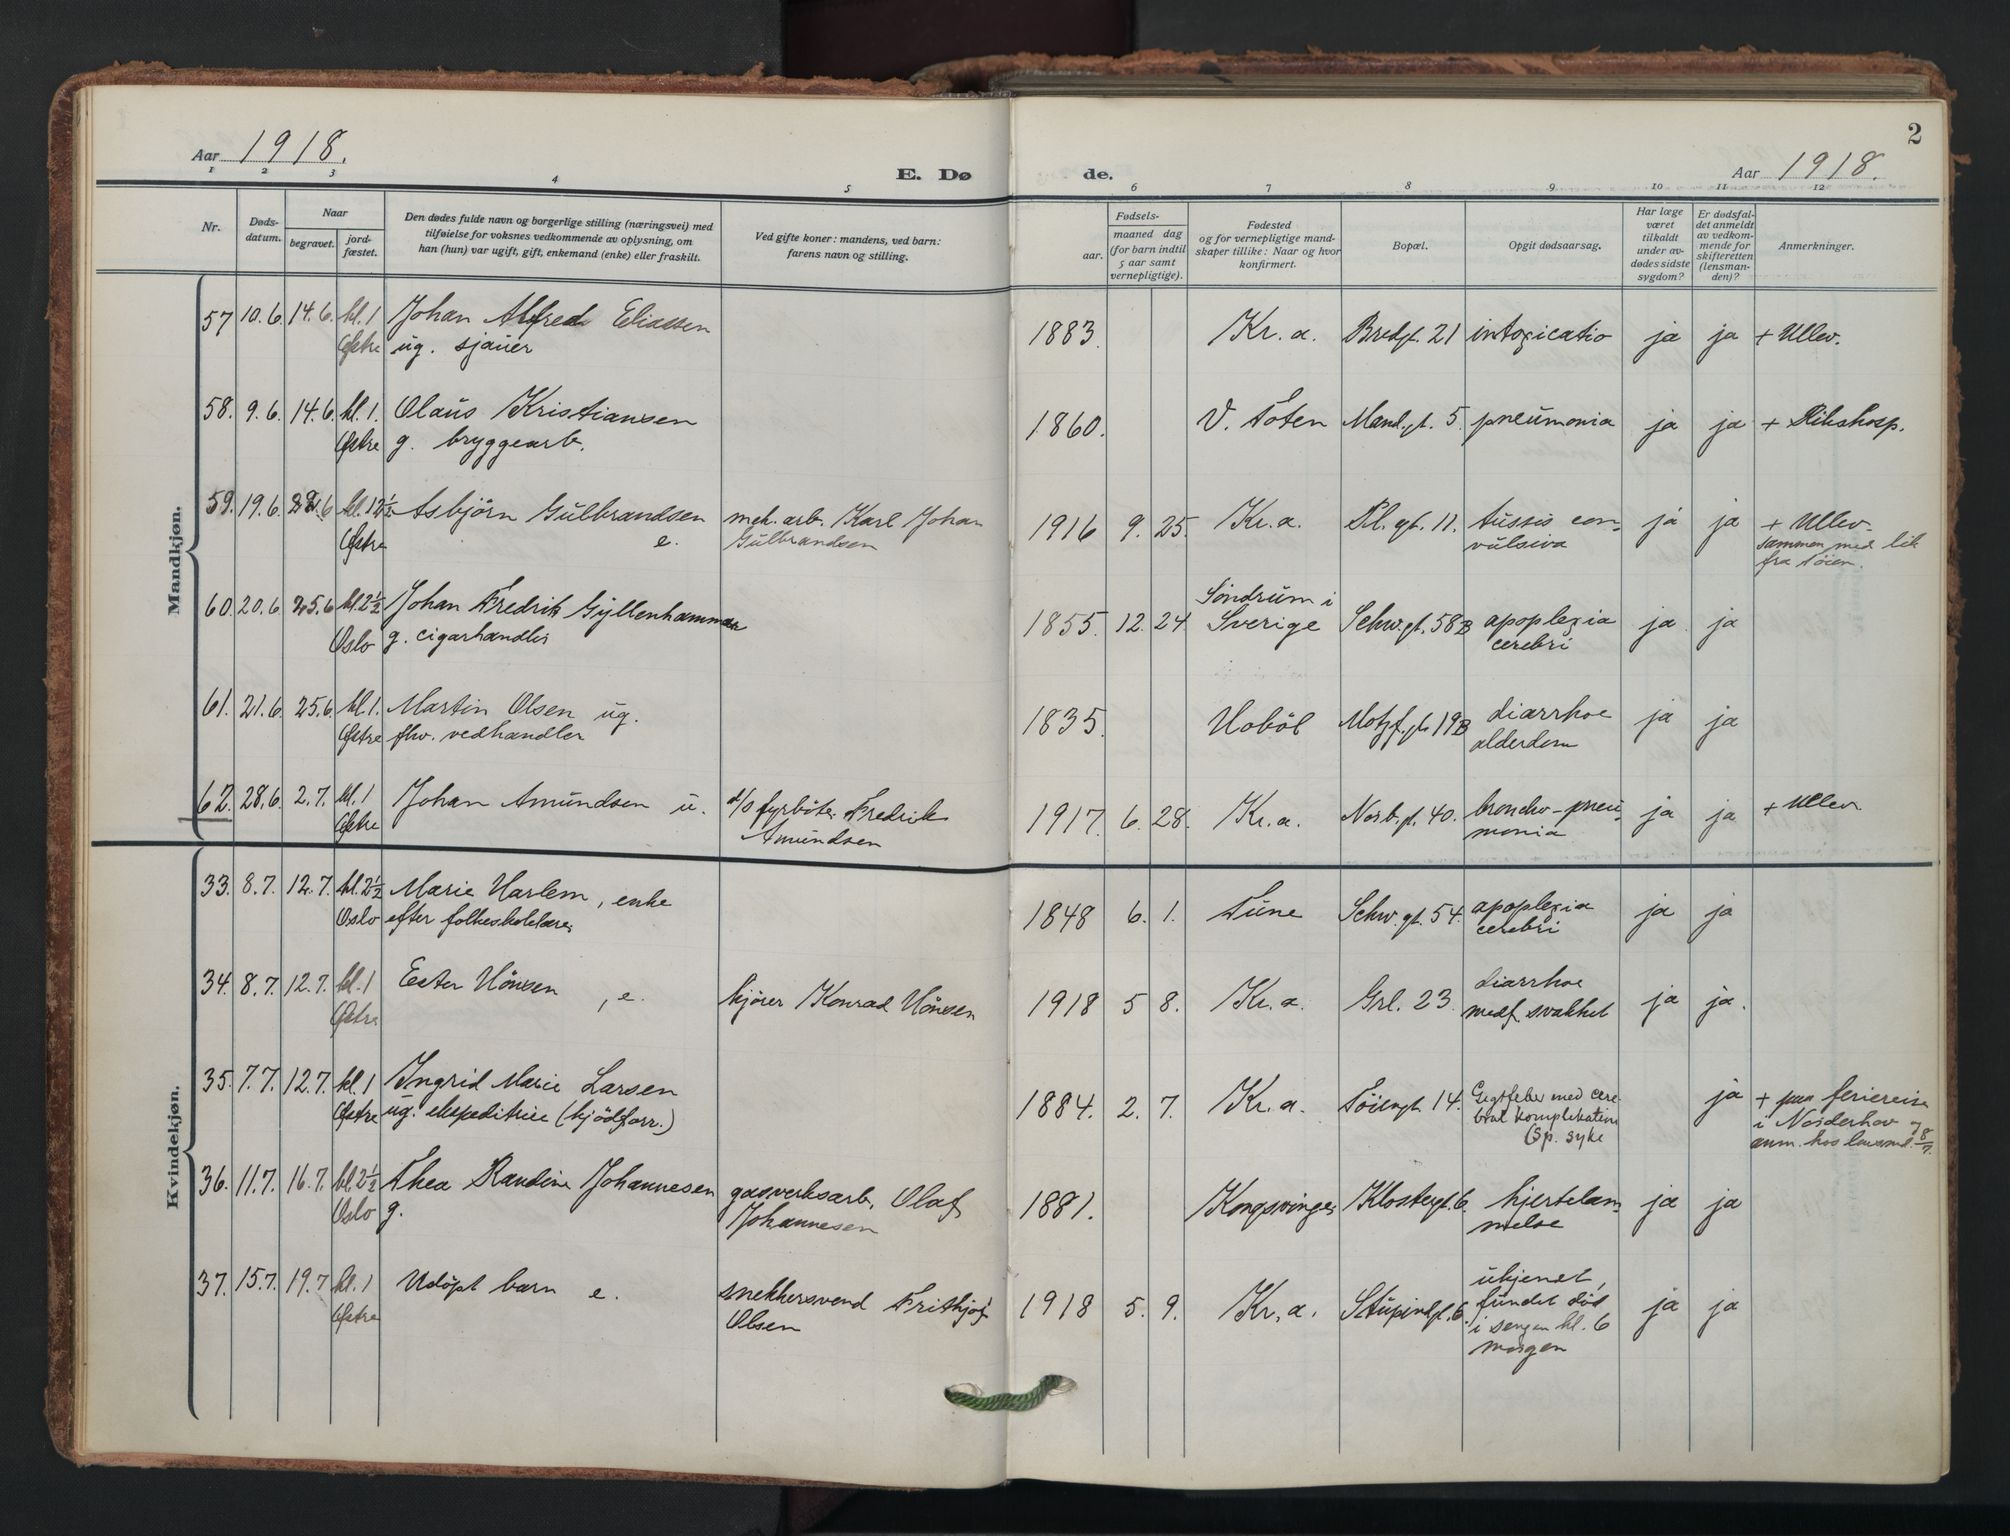 2
Aar 1918. E. Dø de. Aar 1918.
1 2 3 4 5 6 7 8 9 10 11 12
Nr.
Døds-
datum.
Naar
begravet.
jord-
fæstet.
Den dødes fulde navn og borgerlige stilling (næringsvei) med
tilføielse for voksnes vedkommende av oplysning, om
han (hun) var ugift, gift, enkemand (enke) eller fraskilt.
Ved gifte koner: mandens, ved barn:
farens navn og stilling.
Fødsels-
aar.
maaned dag
(for barn indtil
5 aar samt
vernepligtige).
Fødested
og for vernepligtige mand-
skaper tillike: Naar og hvor
konfirmert.
Bopæl.
Opgit dødsaarsag.
Har læge
været
tilkaldt
under av-
dødes sidste
sygdom?
Er dødsfal-
det anmeldt
av vedkom-
mende for
skifteretten
(lensman-
den)?
Anmerkninger.
Mandkjøn.
57 10.6. 14.6. kl. 1 Johan Alfred Eliassen
Østre ug. sjauer
1883. Kr. a. Bredgt. 21 intoxicatio ja ja + Ullev.
58. 9.6. 14.6. kl. 1. Olaus Kristiansen
Østre g. bryggearb.
1860. V. Toten Mand. gt. 5. pneumonia ja ja + Rikshosp.
59. 19.6. kl. 12½ Asbjörn Gulbrandsen mek. arb. Karl Johan
Østre e. Gulbrandsen
1916 9. 25. Kr. a. Pl. gt. 11. tussis con-
vulsiva
ja ja + Ullev.
sammen med lik
fra Töien.
60. 20.6. 25.6 kl. 2½ Johan Fredrik Gyllenhammar
Oslo g. cigarhandler
1855. 12. 24. Söndrum i
Sverige
Schw. gt. 58B apoplexia
cerebri
ja ja
61. 21.6. 25.6. kl. 1. Martin Olsen ug.
Østre fhv. vedhandler
1835. Hoböl Motzf. gt. 19B diarrhoe
alderdom
ja ja
62. 28.6. 2.7. kl. 1 Johan Amundsen u. d/s fyrböter Fredrik
Østre Amundsen
1917. 6. 28. Kr. a. Norb. gt. 40. broncho-pneu-
monia
ja ja + Ullev.
Kvindekjøn.
33. 8.7. 12.7. kl. 2½ Marie Harlem, enke
Oslo efter folkeskolelærer
1848 6. 1. Tune Schw. gt. 54. apoplexia
cerebri
ja ja
34. 8.7. 12.7. kl. 1 Ester Hönsen, e. kjörer Konrad Hönsen
Østre
1918 5 8. Kr. a. Grl. 23. diarrhoe
medf. svakhet
ja ja.
35. 7.7. 12.7. kl. 1 Ingrid Marie Larsen
Østre ug. ekspeditrice (kjödforr.)
1884. 2. 7. Kr. a. Töiengt. 14. Gigtfeber med cere-
bral komplikation
(Sp. syke
ja + paa feriereise
i Norderhov
anm. hos lensmd. 8/7.
36. 11.7. 16.7. kl. 2½ Thea Randine Johannesen gasverksarb. Olaf
Oslo g. Johannesen
1881. Kongsvinger Klostergt. 6. hjertelam-
melse
ja ja
37. 15.7. 19.7 kl. 1 Udöpt barn e. snekkersvend Frithjof
Østre Olsen
1918 5. 9. Kr. a. Stupindgt. 6. ukjendt,
fundet död
i sengen kl. 6
morgen
ja ja